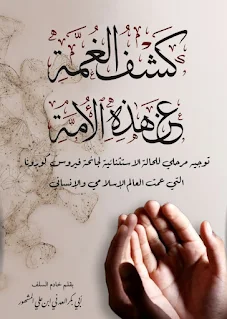 كشف الغمة
عن هذه الأمة
توجيه مرحلي للحالة الاستثنائية لجائحة فيروس كورونا
التي عمت العالم الإسلامي والإنساني
بقلم خادم السلف
أبي بكر العدني ابن علي المشهور